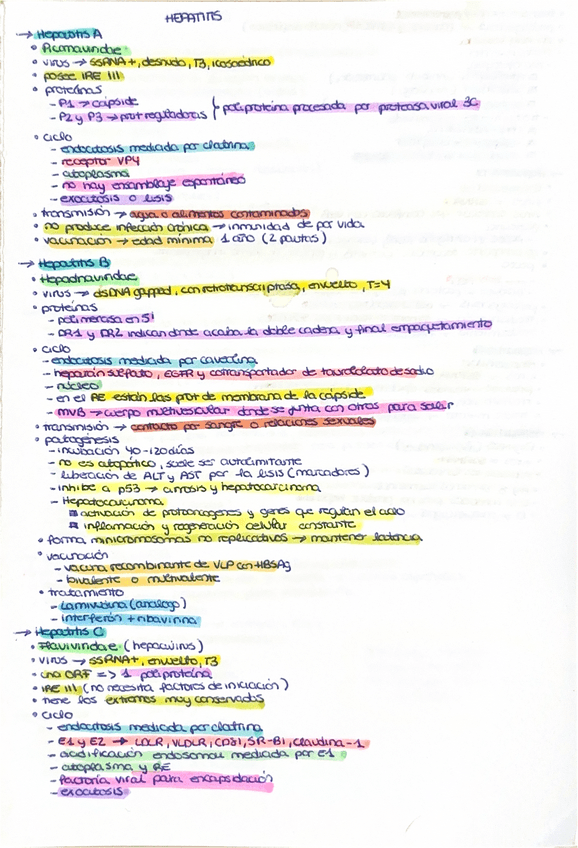 HEPATITIS
→ Hepatitis A
• Picornaviridae
• virus → ssRNA+, desnudo, T3, icosaédrico
• posee IRE III
• proteínas
- P1 → cápside
- P2 y P3 → prot reguladoras } poliproteína procesada por proteasa viral 3C
• ciclo
- endocitosis mediada por clatrina
- receptor VP4
- citoplasma
- no hay ensamblaje espontáneo
- exocitosis o lisis
• transmisión → agua o alimentos contaminados
• no produce infección crónica → inmunidad de por vida
• vacunación → edad mínima 1 año (2 pautas)
→ Hepatitis B
• Hepadnaviridae
• virus → dsDNA gapped, con retrotranscriptasa, envuelto, T=4
• proteínas
- polimerasa en 5'
- DR1 y DR2 indican donde acaba la doble cadena y final empaquetamiento
• ciclo
- endocitosis mediada por caveolina
- heparán sulfato, EGFR y cotransportador de taurocolato de sodio
- núcleo
- en el RE están las prot de membrana de la cápside
- MVB → cuerpo multivesicular donde se junta con otros para salir
• transmisión → contacto por sangre o relaciones sexuales
• patogénesis
- incubación 40-120 días
- no es citopático, suele ser autolimitante
- liberación de ALT y AST por la lisis (marcadores)
- inhibe a p53 → cirrosis y hepatocarcinoma
- Hepatocarcinoma
activación de protooncogenes y genes que regulan el ciclo
inflamación y regeneración celular constante
• forma minicromosomas no replicativos → mantener latencia
• vacunación
- vacuna recombinante de VLP con HBSAg
- bivalente o multivalente
• tratamiento
- Lamivudina (análogo)
- interferón + ribavirina
→ Hepatitis C
• Flaviviridae (hepacivirus)
• virus → ssRNA+, envuelto, T3
• una ORF => 1 poliproteína
• IRE III (no necesita factores de iniciación)
• tiene los extremos muy conservados
• ciclo
- endocitosis mediada por clatrina
- E1 y E2 → LDLR, VLDLR, CD81, SR-B1, Claudina-1
- acidificación endosomal mediada por E1
- citoplasma y RE
- factoría viral para encapsidación
- exocitosis